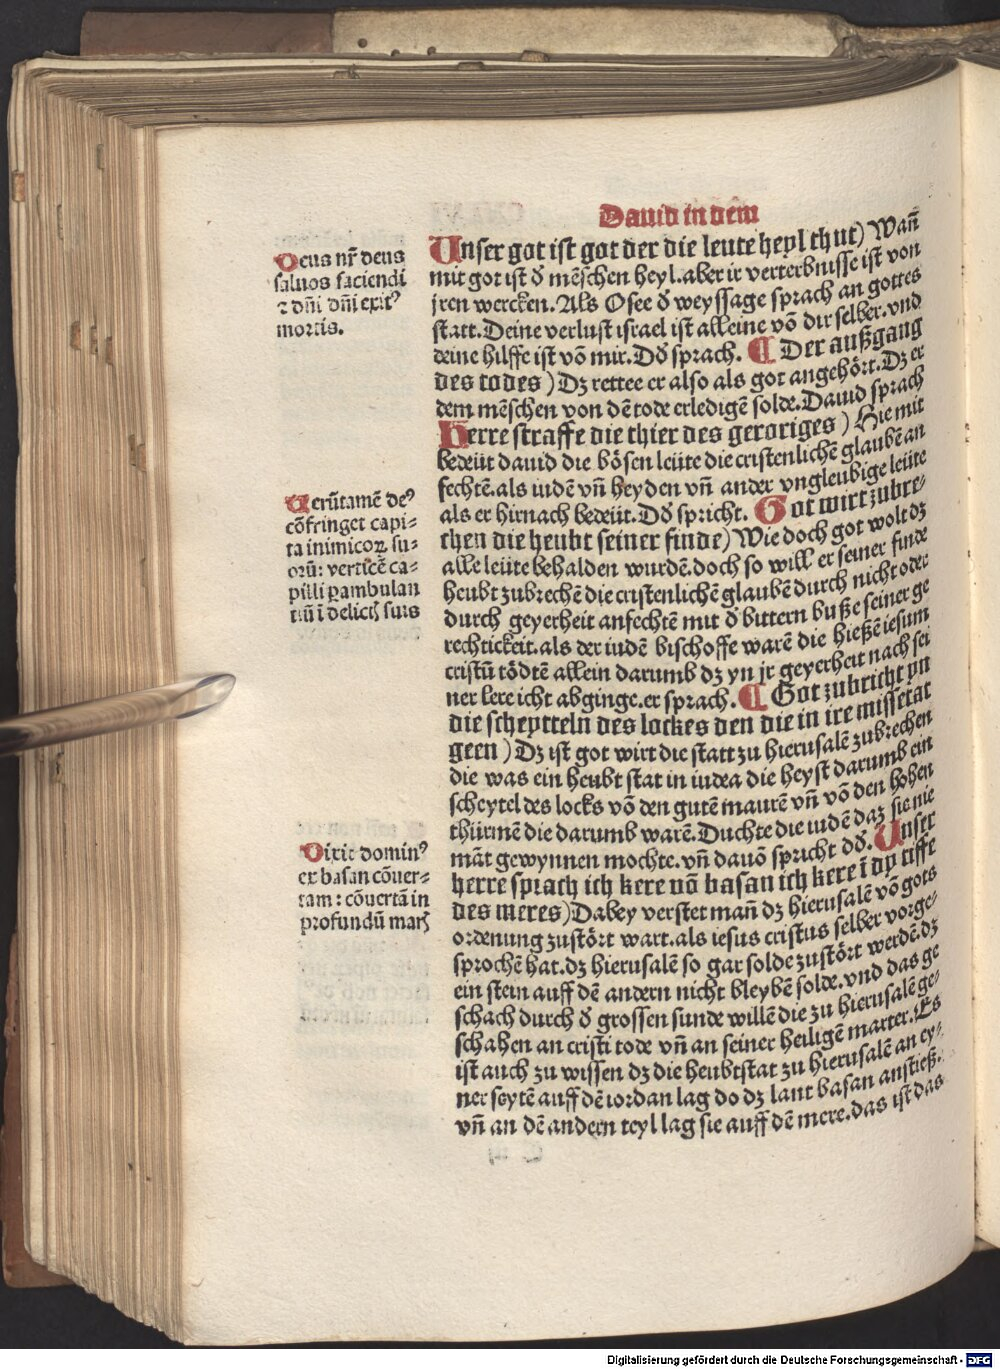 Dauid in dem
Deus nr̄ deus
saluos faciendi
⁊ dn̄i dn̄i exit⁹
mortis.
Unser got ist got der die leute heyl thut) Wan̄
mit got ist d̄ mēschen heyl.aber ir verterbnisse ist von
jren wercken.Als Osee d̄ weyssage sprach an gottes
statt.Deine verlust israel ist alleine vō dir selber.vnd
deine hilffe ist vō mir.Dō sprach. ¶ Der außgang
des todes ) Dz rettee er also als got angehört.Dz er
dem mēschen von dē tode erledigē solde.Dauid sprach
Herre straffe die thier des geroriges ) Hie mit
bedeüt dauid die bösen leüte die cristenlichē glaubē an
fechtē.als iudē vn̄ heyden vn̄ ander vngleubige leüte
als er hirnach bedeüt.Dō spricht. Got wirt zubre⸗
chen die heubt seiner finde) Wie doch got wolt dz
alle leüte behalden wurdē.doch so will er seiner finde
heubt zubrechē die cristenlichē glaubē durch nicht oder
durch geyerheit anfechtē mit d̄ bittern buße seiner ge
rechtickeit.als der iudē bischoffe warē die hießē iesum
cristū tödtē allein darumb dz yn jr geyerheit nach sei
ner lere icht abginge.er sprach. ¶ Got zubricht yn
die scheptteln des lockes den die in ire missetat
geen ) Dz ist got wirt die statt zu hierusalē zubrechen
die was ein heubt stat in iudea die heyst darumb ein
scheytel des locks vō den gutē maurē vn̄ vō den hohen
thürmē die darumb warē.Duchte die iudē daz sie nie
māt gewynnen mochte.vn̄ dauō spricht dō. Unser
herre sprach ich kere vō basan ich kere ī dy tiffe
des meres) Dabey verstet man̄ dz hierusalē vō gots
ordenung zustört wart.als iesus cristus selber vorge⸗
sprochē hat.dz hierusalē so gar solde zustört werdē.dz
ein stein auff dē andern nicht bleybē solde.vnd das ge
schach durch d̄ grossen sunde willē die zu hierusalē ge⸗
schahen an cristi tode vn̄ an seiner heiligē marter.Es
ist auch zu wissen dz die heubtstat zu hierusalē an ey⸗
ner seytē auff dē iordan lag do dz lant basan anstieß.
vn̄ an dē andern teyl lag sie auff dē mere.das ist das
Uerūtamē de⁹
cōfringet capi⸗
ta inimicoꝝ su⸗
orū: verticē ca⸗
pilli ꝑambulan
tiū ī delictꝭ suis
Dixit domin⁹
ex basan cōuer⸗
tam : cōuertā in
profundū marꝭ
Digitalisierung gefördert durch die Deutsche Forschungsgemeinschaft - DFG